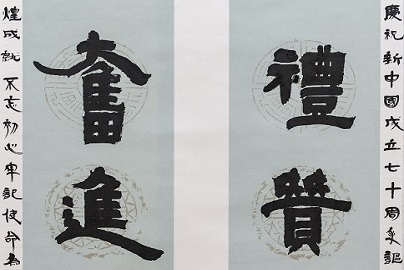 慶祝新中國成立七十周年謳
禮贊
奮進
煌成就不忘初心牢記使命為